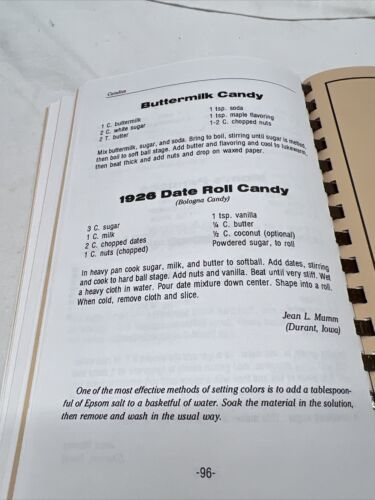 Candies
Buttermilk Candy
1 C. buttermilk
2 C. white sugar
2 T. butter
1 tsp. soda
1 tsp. maple flavoring
1-2 C. chopped nuts
Mix buttermilk, sugar, and soda. Bring to boil, stirring until sugar is melted,
then boil to soft ball stage. Add butter and flavoring and cool to lukewarm,
then beat thick and add nuts and drop on waxed paper.
1926 Date Roll Candy
(Bologna Candy)
3 C. sugar
1 C. milk
2 C. chopped dates
1 C. nuts (chopped)
1 tsp. vanilla
¼ C. butter
½ C. coconut (optional)
Powdered sugar, to roll
In heavy pan cook sugar, milk, and butter to softball. Add dates, stirring
and cook to hard ball stage. Add nuts and vanilla. Beat until very stiff. Wet
a heavy cloth in water. Pour date mixture down center. Shape into a roll.
When cold, remove cloth and slice.
Jean L. Mumm
(Durant, Iowa)
One of the most effective methods of setting colors is to add a tablespoon-
ful of Epsom salt to a basketful of water. Soak the material in the solution,
then remove and wash in the usual way.
-96-